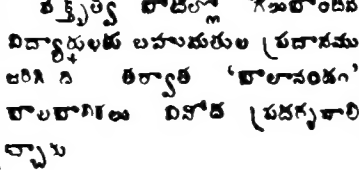 వక్తృత్వ పోటీల్లో గెలుపొందిన
విద్యార్థులకు బహుమతుల ప్రదానము
జరిగింది తర్వాత 'బాలానందం'
బాలబాలికలు వినోద ప్రదర్శనలి
చ్చారు